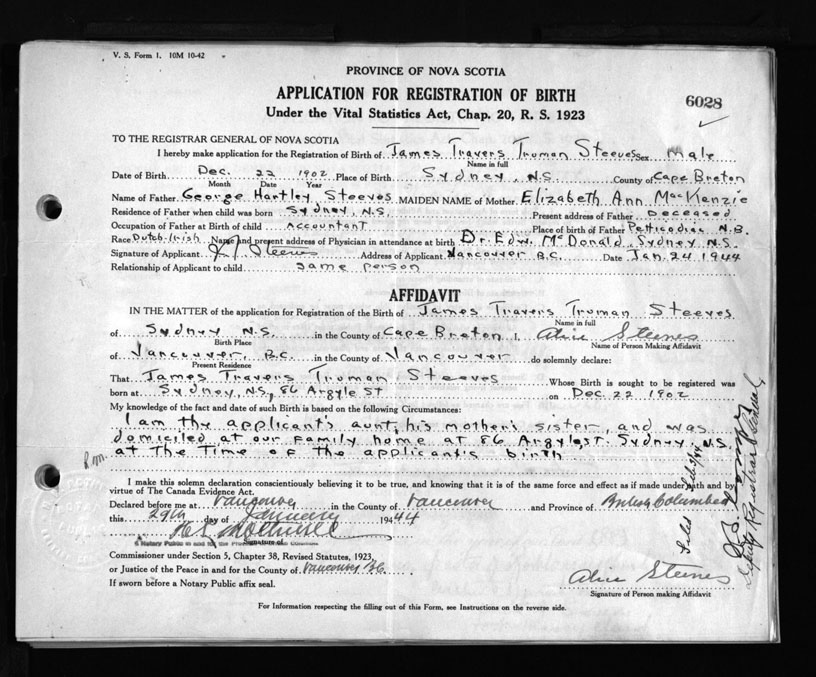 V. S. Form 1. 10M 10-42
PROVINCE OF NOVA SCOTIA
APPLICATION FOR REGISTRATION OF BIRTH
6028
Under the Vital Statistics Act, Chap. 20, R. S. 1923
TO THE REGISTRAR GENERAL OF NOVA SCOTIA
I hereby make application for the Registration of Birth of James Travers Truman Steeves Sex Male
Name in full
Date of Birth Dec. 22 1902 Place of Birth Sydney, N.S. County of Cape Breton
Month Date Year
Name of Father George Hartley Steeves MAIDEN NAME of Mother Elizabeth Ann MacKenzie
Residence of Father when child was born Sydney, N.S. Present address of Father Deceased
Occupation of Father at Birth of child Accountant Place of birth of Father Petticodiac N.B.
Race Dutch-Irish Name and present address of Physician in attendance at birth Dr. Edw. McDonald, Sydney N.S.
Signature of Applicant Steeves Address of Applicant Vancouver B.C. Date Jan. 24 1944
Relationship of Applicant to child same person
AFFIDAVIT
IN THE MATTER of the application for Registration of the Birth of James Travers Truman Steeves
Name in full
of Sydney N.S. in the County of Cape Breton I, Alice Steeves
Birth Place Name of Person Making Affidavit
of Vancouver, B.C. in the County of Vancouver do solemnly declare:
Present Residence
That James Travers Truman Steeves Whose Birth is sought to be registered was
born at Sydney, N.S., 86 Argyle St on Dec. 22 1902
My knowledge of the fact and date of such Birth is based on the following Circumstances:
I am the applicant's aunt, his mother's sister, and was
domiciled at our family home at 86 Argyle St. Sydney N.S.
at the time of the applicant's birth.
I make this solemn declaration conscientiously believing it to be true, and knowing that it is of the same force and effect as if made under oath and by
virtue of The Canada Evidence Act.
Declared before me at Vancouver in the County of Vancouver and Province of British Columbia
this 29th day of January 1944
Signature of
Commissioner under Section 5, Chapter 38, Revised Statutes, 1923,
or Justice of the Peace in and for the County of Vancouver BC
If sworn before a Notary Public affix seal.
Alice Steeves
Signature of Person making Affidavit
For Information respecting the filling out of this Form, see Instructions on the reverse side.
Deputy Registrar General